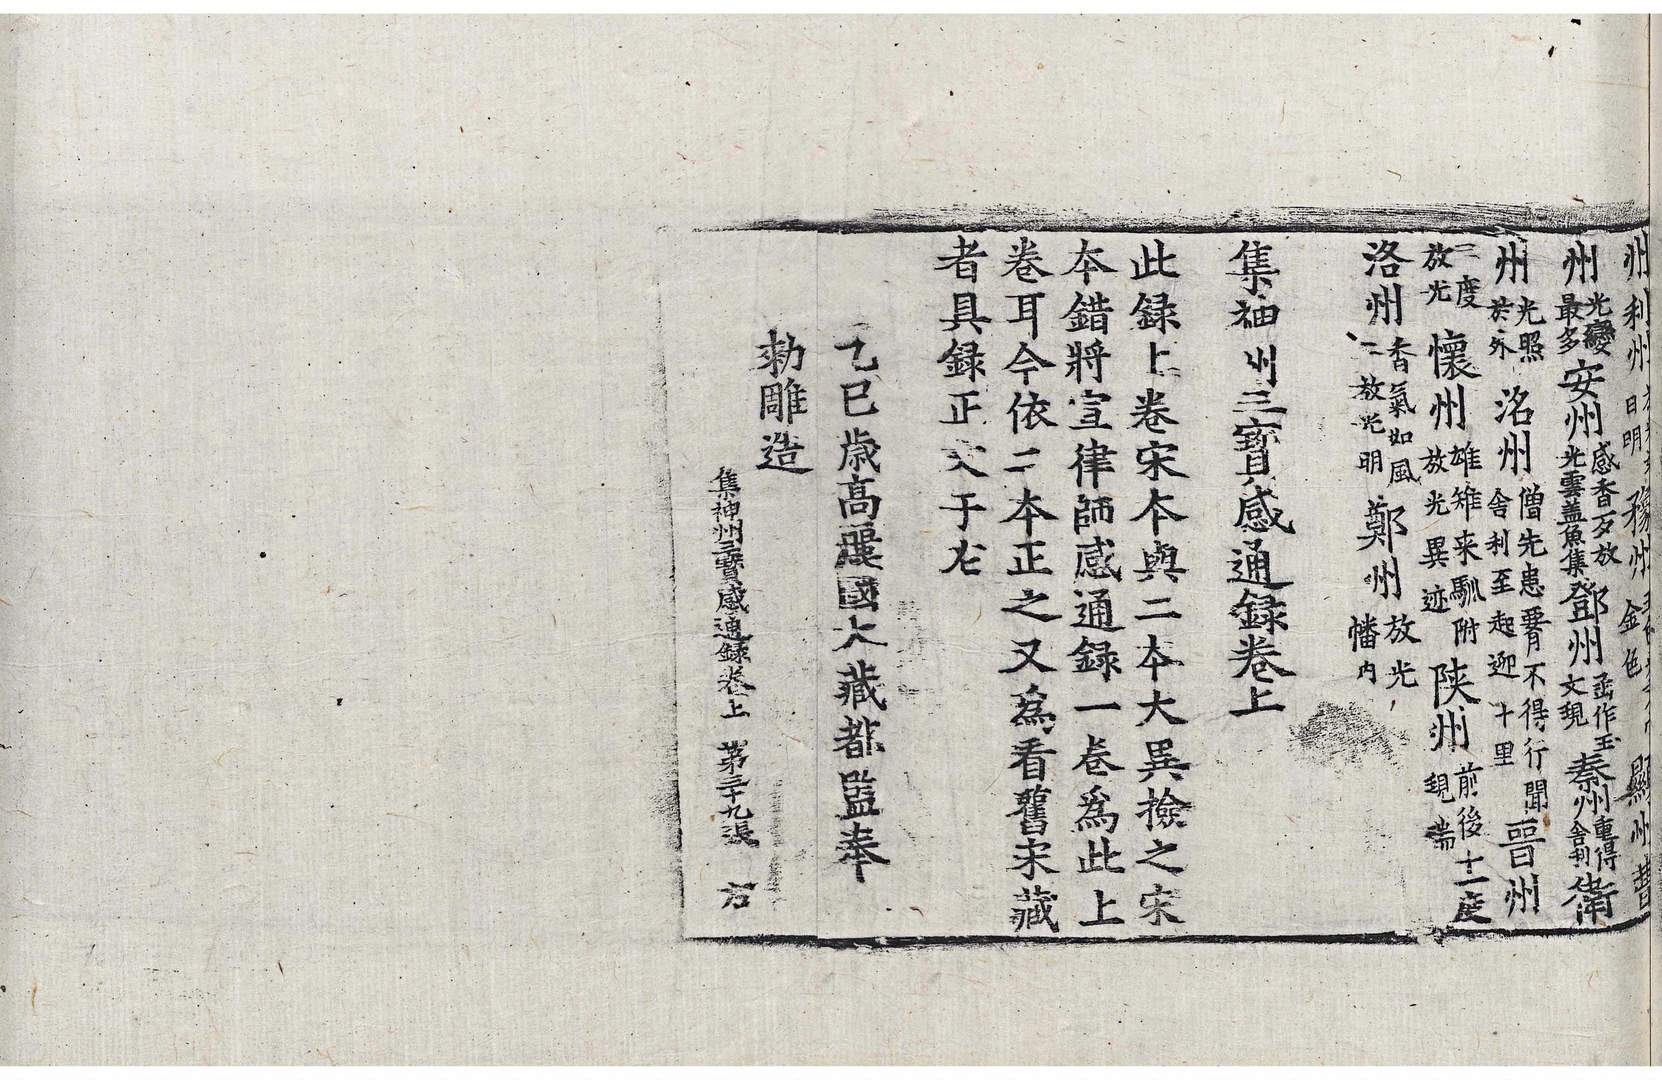 州利州日明豫州金色顯州昔
州光變最多安州感香歹放光雲盖魚集鄧州函作玉文現秦州重得舍利衛
州光照於外洺州僧先患聾不得行聞舍利至起迎十里晉州
二度放光懷州雄雉来馴附放光異迹陕州前後十一度現瑞
洛州香氣如風二放光明鄭州放光幡内
集神州三寶感通録卷上
此録上卷宋本與二本大異撿之宋
本錯將宣律師感通録一卷為此上
卷耳今依二本正之又為看舊宋藏
者具録正文于左
乙巳歳高麗國大藏都監奉
勑雕造
集神州三寶感通録卷上 第三十九張 方